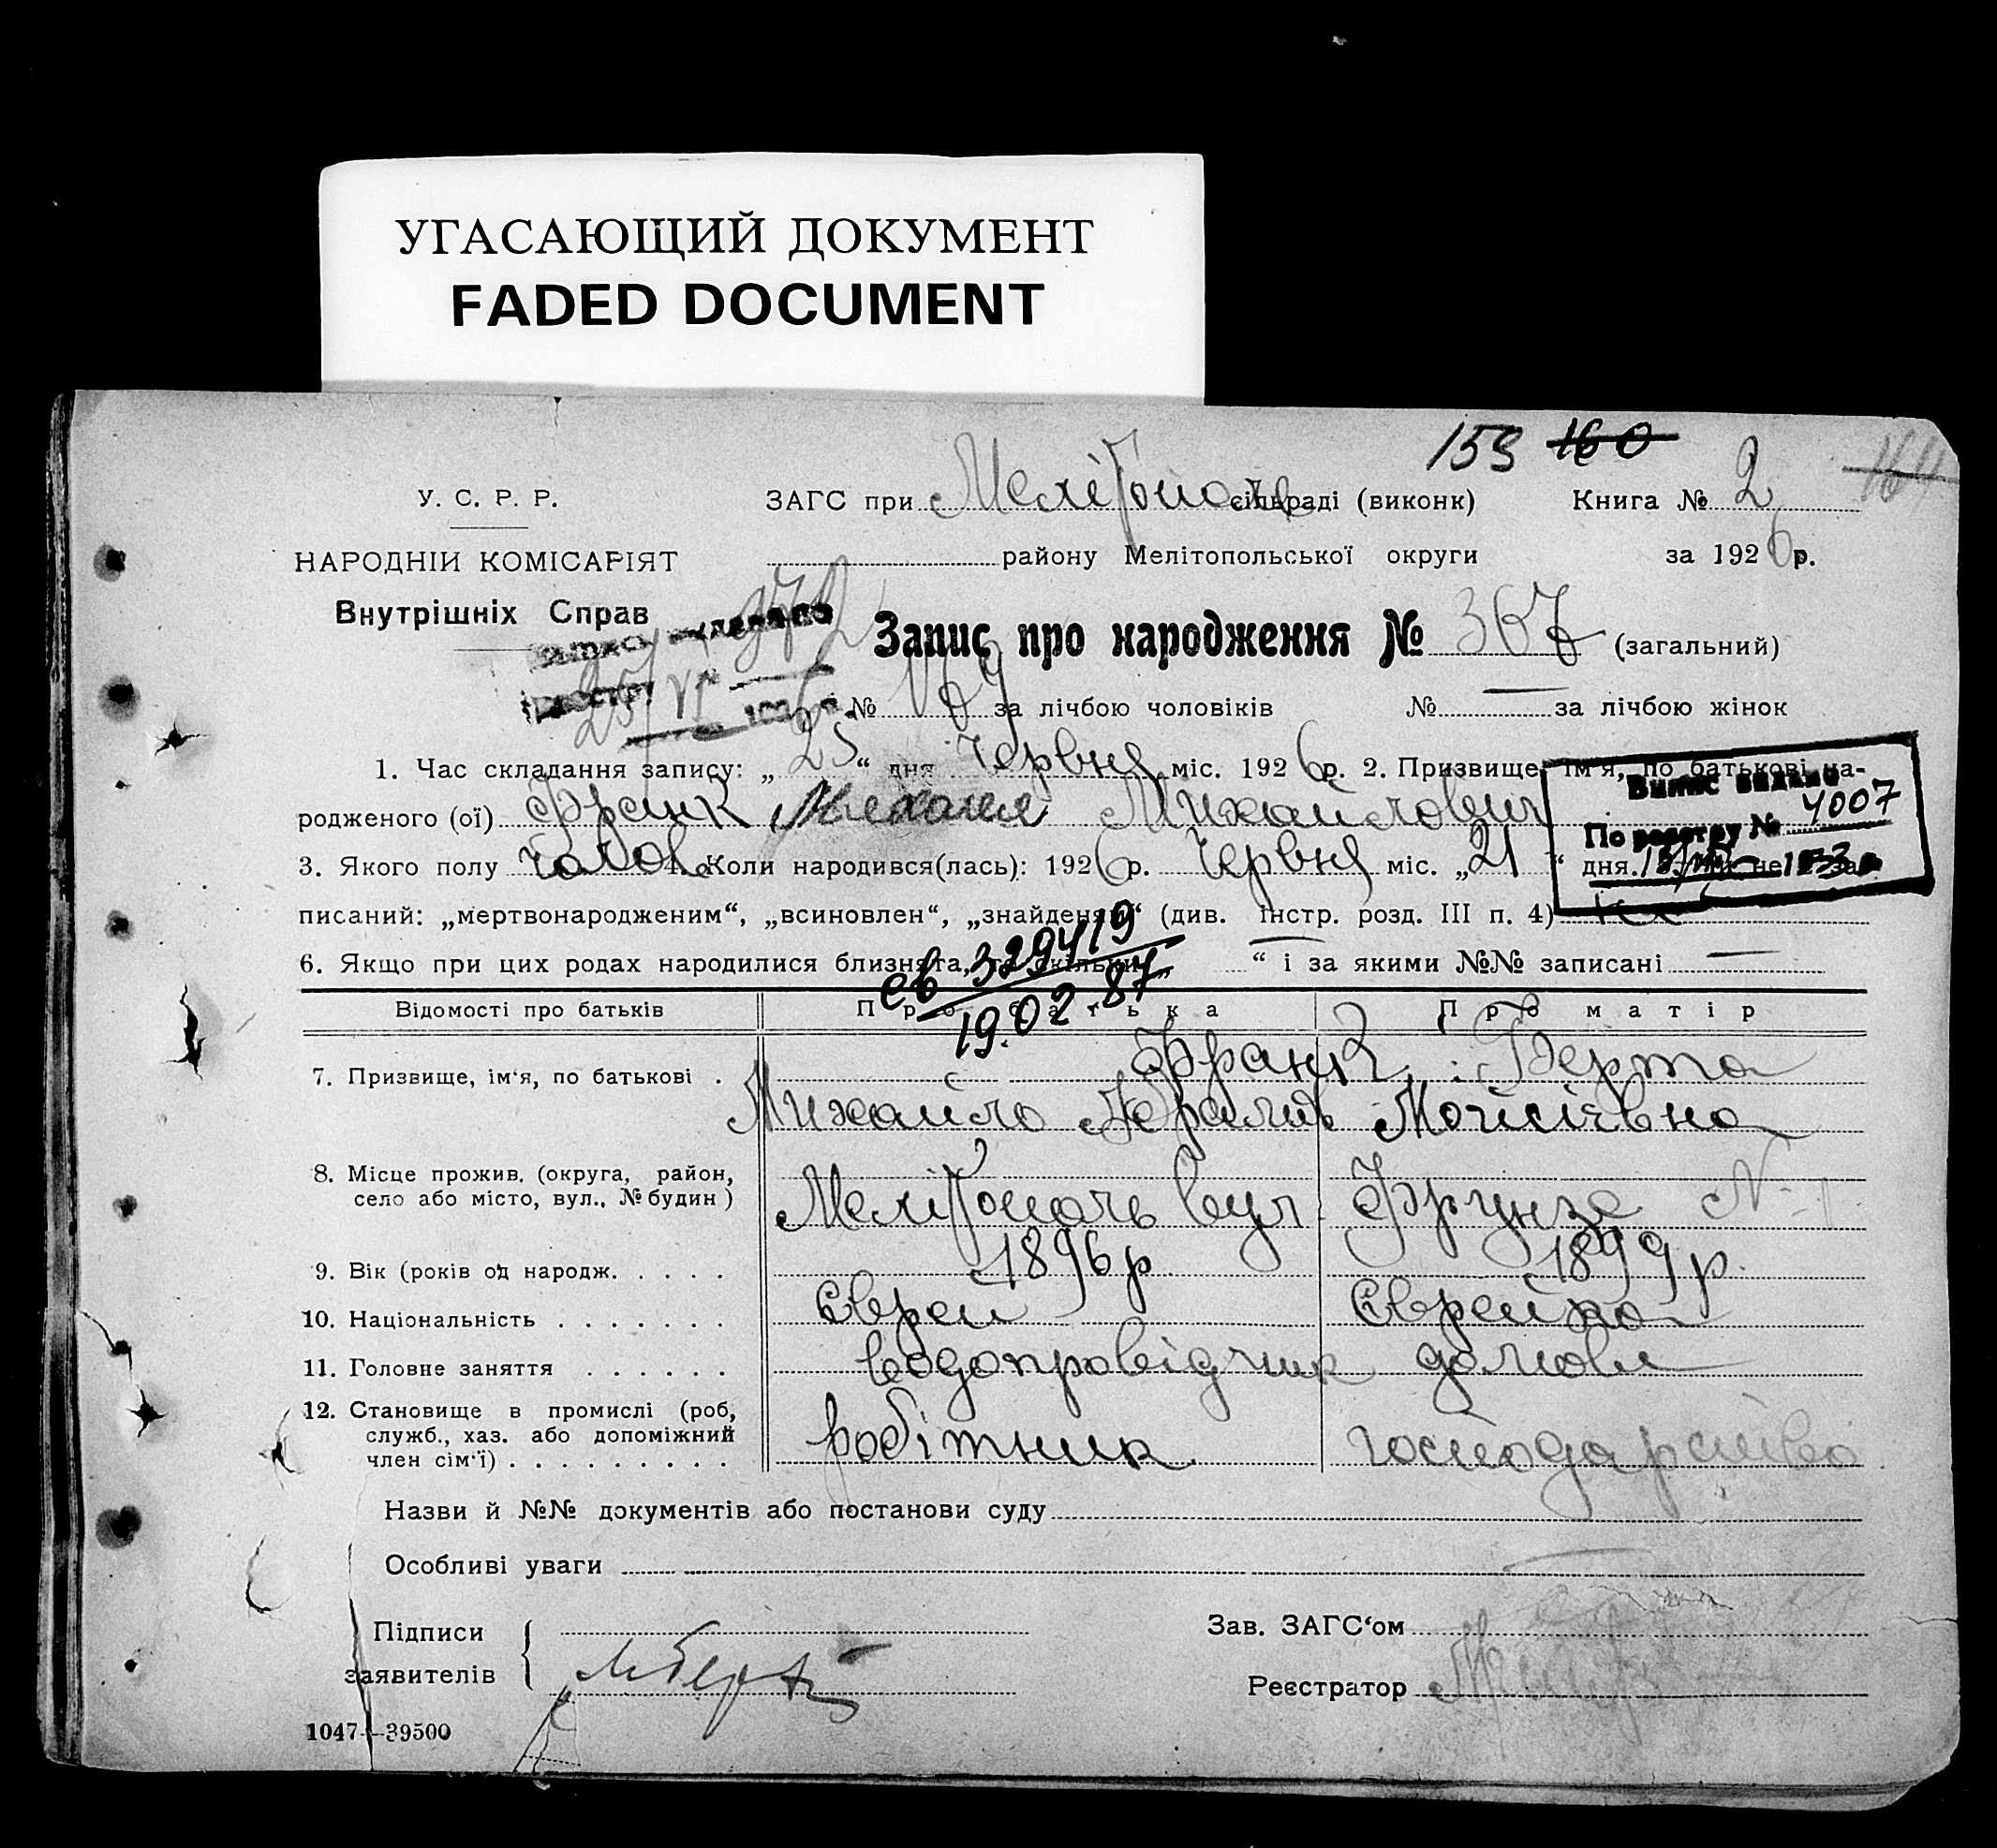 УГАСАЮЩИЙ ДОКУМЕНТ
FADED DOCUMENT
153 160
У. С. Р. Р. ЗАГС при Мелітополь сільраді (виконк) Книга № 2
НАРОДНІЙ КОМІСАРІЯТ району Мелітопольської округи за 1926 р.
Внутрішніх Справ
Запис про народження № 367 (загальний)
№ за лічбою чоловіків № — за лічбою жінок
1. Час складання запису: „25“ дня Червня міс. 1926 р. 2. Призвище, ім'я, по батькові на-
родженого (ої) Франк Михайлович
Випис видано
По реєстру № 4007
3. Якого полу чолов. 4. Коли народився(лась): 1926 р. Червня міс. „21“ дня.
писаний: „мертвонародженим“, „всиновлен“, „знайденим“ (див. інстр. розд. III п. 4)
6. Якщо при цих родах народилися близнята, то скільки „—“ і за якими №№ записані —
св 329419
19.02.87
Відомості про батьків Про батька Про матір
7. Призвище, ім'я, по батькові . Франк Берта
Михайло Мойсієвна
8. Місце прожив. (округа, район,
село або місто, вул., № будин) Мелітополь вул. Фрунзе №
9. Вік (років од народж. . . . . . 1896 р 1899 р.
10. Національність . . . . . . . Єврей Єврейка
11. Головне заняття . . . . . . водопровідчик домове
12. Становище в промислі (роб,
служб., хаз. або допоміжний робітник господарство
член сім'ї) . . . . . . . . .
Назви й №№ документів або постанови суду
Особливі уваги
Підписи Зав. ЗАГС'ом
заявителів Реєстратор
1047—39500